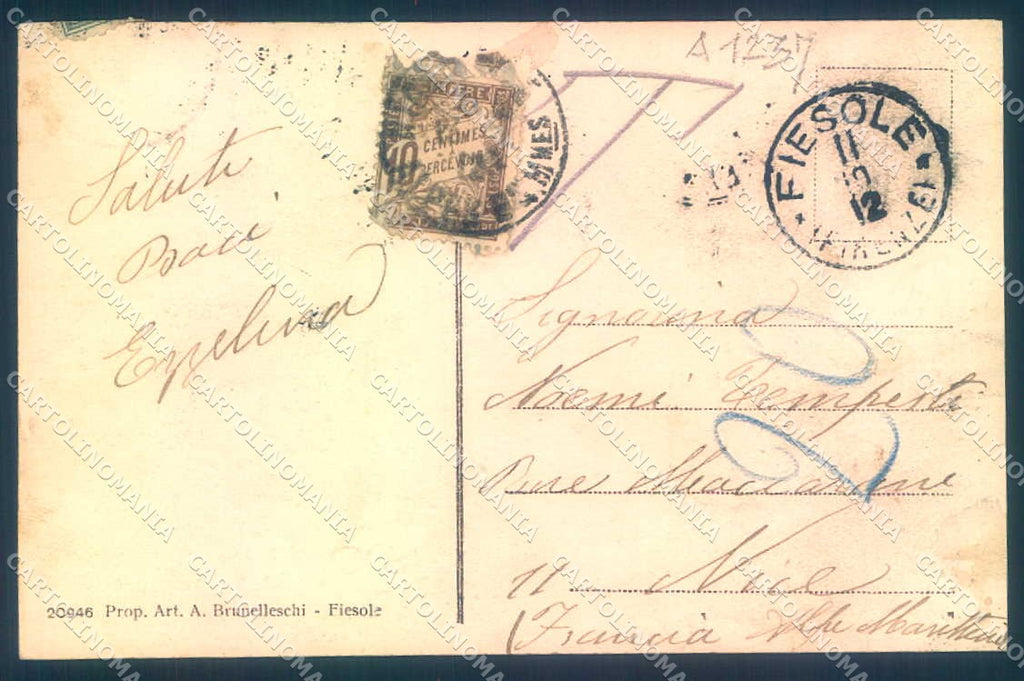 Saluti
Baci
A 123
10
CENTIMES
PERCEVOIR
FIESOLE
11
12
(FIRENZE)
Signorina
Noemi Tempesti
Rue
11 Nice
(Francia Alpe Maritime
20946 Prop. Art. A. Brunelleschi - Fiesole
CARTOLINOMANIA